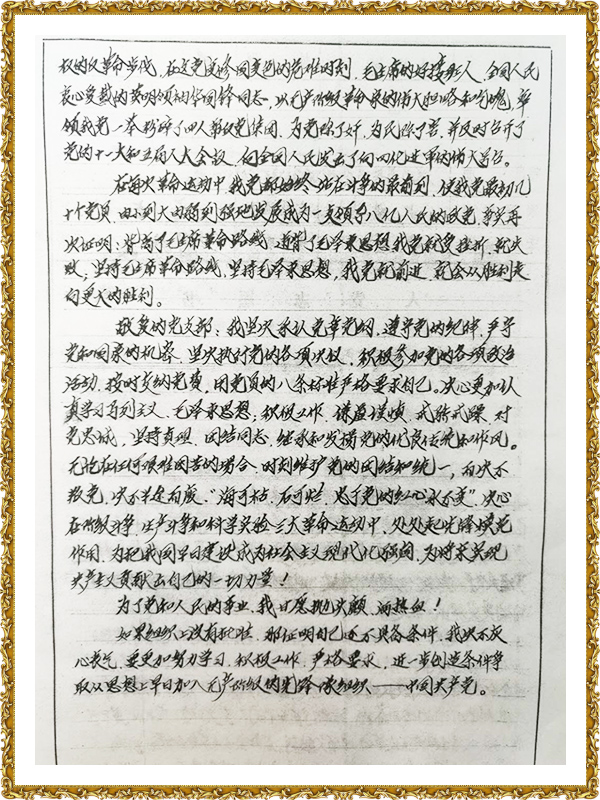 权的反革命步伐，在这党变修国变色的危难时刻，毛主席的好接班人、全国人民
衷心爱戴的英明领袖华国锋同志，以无产阶级革命家的伟大胆略和气魄，率
领我党一举粉碎了四人帮反党集团，为党除了奸，为民除了害，并及时召开了
党的十一大和五届人大会议，向全国人民发出了向四化进军的伟大号召。
在每次革命运动中，我党都始终站在斗争的最前列，使我党最初几
十个党员，由小到大由弱到强地发展成为一支领导八亿人民的政党，事实再
次证明：背离了毛主席革命路线，违背了毛泽东思想，我党就受挫折，就失
败，坚持毛主席革命路线，坚持毛泽东思想，我党就前进，就会从胜利走
向更大的胜利。
敬爱的党支部：我坚决承认党章党纲，遵守党的纪律，严守
党和国家的机密，坚决执行党的各项决议，积极参加党的各项政治
活动，按时交纳党费，用党员的八条标准严格要求自己。决心更加认
真学习马列主义、毛泽东思想，积极工作，谦虚谨慎，戒骄戒躁，对
党忠诚，坚持真理，团结同志，继承和发扬党的优良传统和作风。
无论在任何艰难困苦的场合，时刻维护党的团结和统一，而决不
叛党，决不半途而废，“海可枯，石可烂，忠于党的红心永不变”，决心
在阶级斗争、生产斗争和科学实验三大革命运动中，处处起先锋模范
作用，为把我国早日建设成为社会主义现代化强国，为将来实现
共产主义贡献出自己的一切力量！
为了党和人民的事业，我甘愿抛头颅、洒热血！
如果组织上没有批准，那证明自己还不具备条件，我决不灰
心丧气，要更加努力学习，积极工作，严格要求，进一步创造条件争
取从思想上早日加入无产阶级的先锋队组织——中国共产党。